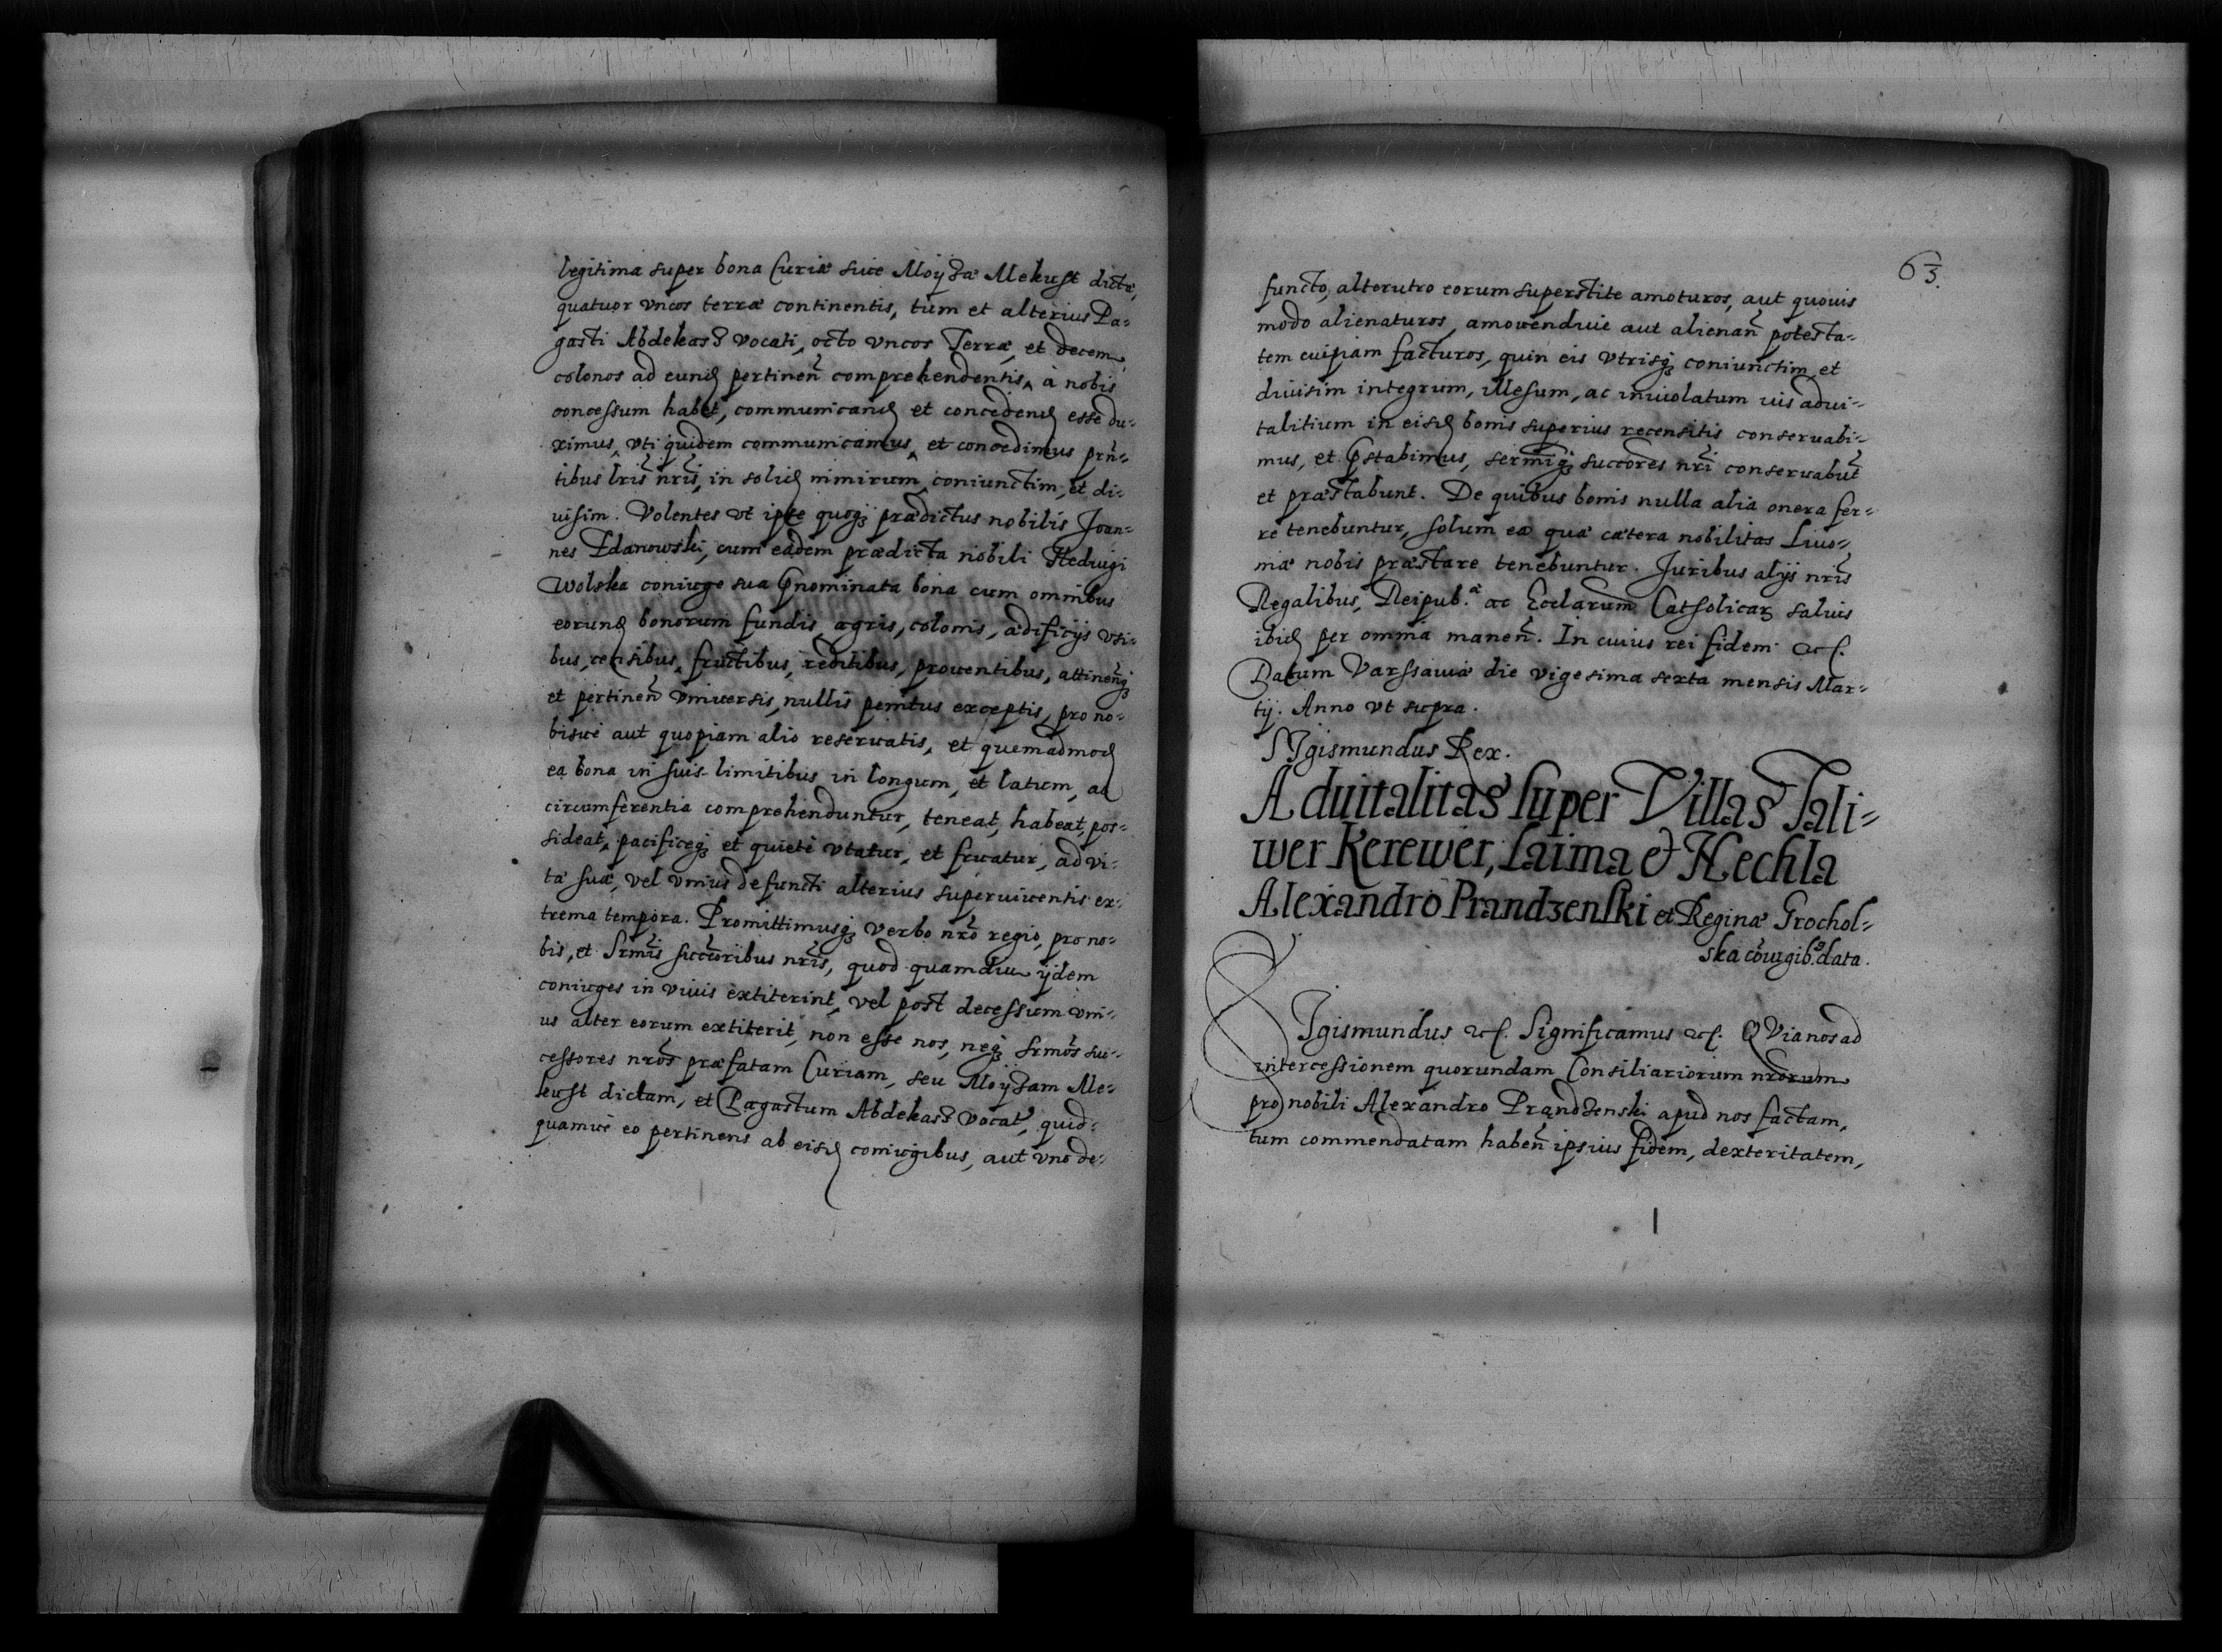 legitima super bona Curiæ siue Moyzæ Mekust dictæ,
quatuor vncos terræ continentis, tum et alterius Pa-
gasti Abdekass vocati, octo vncos Terræ, et decem
colonos ad eund pertinen̄ comprehendentis, à nobis
concessum habet, communicand et concedend esse du-
ximus, vti quidem communicamus, et concedimus prn̄-
tibus lris nris, in solid nimirum, coniunctim, et di-
uisim. Volentes vt ipse quoqȝ prædictus nobilis Joan-
nes Zdanowski, cum eadem prædicta nobili Heduigi
Wolska coniuge sua Pnominata bona cum omnibus
eorund bonorum fundis, agris, colonis, ædificijs vti-
bus, censibus, fructibus, reditibus, prouentibus, attinenqȝ
et pertinen̄ vniuersis, nullis penitus exceptis, pro no-
bisue aut quopiam alio reseruatis, et quemadmod
ea bona in suis limitibus in longum, et latum, ac
circumferentia comprehenduntur, teneat, habeat, pos-
sideat, pacificeqȝ et quietè vtatur, et fruatur, ad vi-
tæ suæ, vel vnius defuncti alterius superuiuentis ex-
trema tempora. Promittimusqȝ verbo nro regio, pro no-
bis, et Srmis succoribus nris, quod quamdiu ijdem
coniuges in viuis extiterint, vel post decessum vni-
us alter eorum extiterit, non esse nos, neqȝ srmos suc-
cessores nros præfatam Curiam, seu Moyzam Me-
kust dictam, et Pagastum Abdekass vocat, quid-
quamue eo pertinens ab eisd coniugibus, aut vno de-
63.
functo, alterutro eorum superstite amoturos, aut quouis
modo alienaturos, amouendiue aut alienan̄ potesta-
tem cuipiam facturos, quin eis vtrisqȝ coniunctim et
diuisim integrum, illesum, ac inuiolatum ius adui-
talitium in eisd bonis superius recensitis conseruabi-
mus, et Pstabimus, sermiqȝ succores nri conseruabut
et præstabunt. De quibus bonis nulla alia onera fer-
re tenebuntur, solum ea quæ cætera nobilitas Liuo-
niæ nobis præstare tenebuntur. Juribus alijs nris
Regalibus, Reipub.æ ac Ecclarum Catholicarȝ saluis
ibid per omnia manen̄. In cuius rei fidem etc.
Datum Varssauiæ die vigesima sexta mensis Mar-
tij. Anno vt supra.
SIgismundus Rex.
Aduitalitas super Villas Tali-
wer Kerewer, Laima & Hechla
Alexandro Prandzenski et Reginæ Grochol-
ska cōiugib9 data.
SIgismundus etc. Significamus etc. QVia nos ad
intercessionem quorundam Consiliariorum nrorum
pro nobili Alexandro Prandzenski apud nos factam,
tum commendatam haben̄ ipsius fidem, dexteritatem,